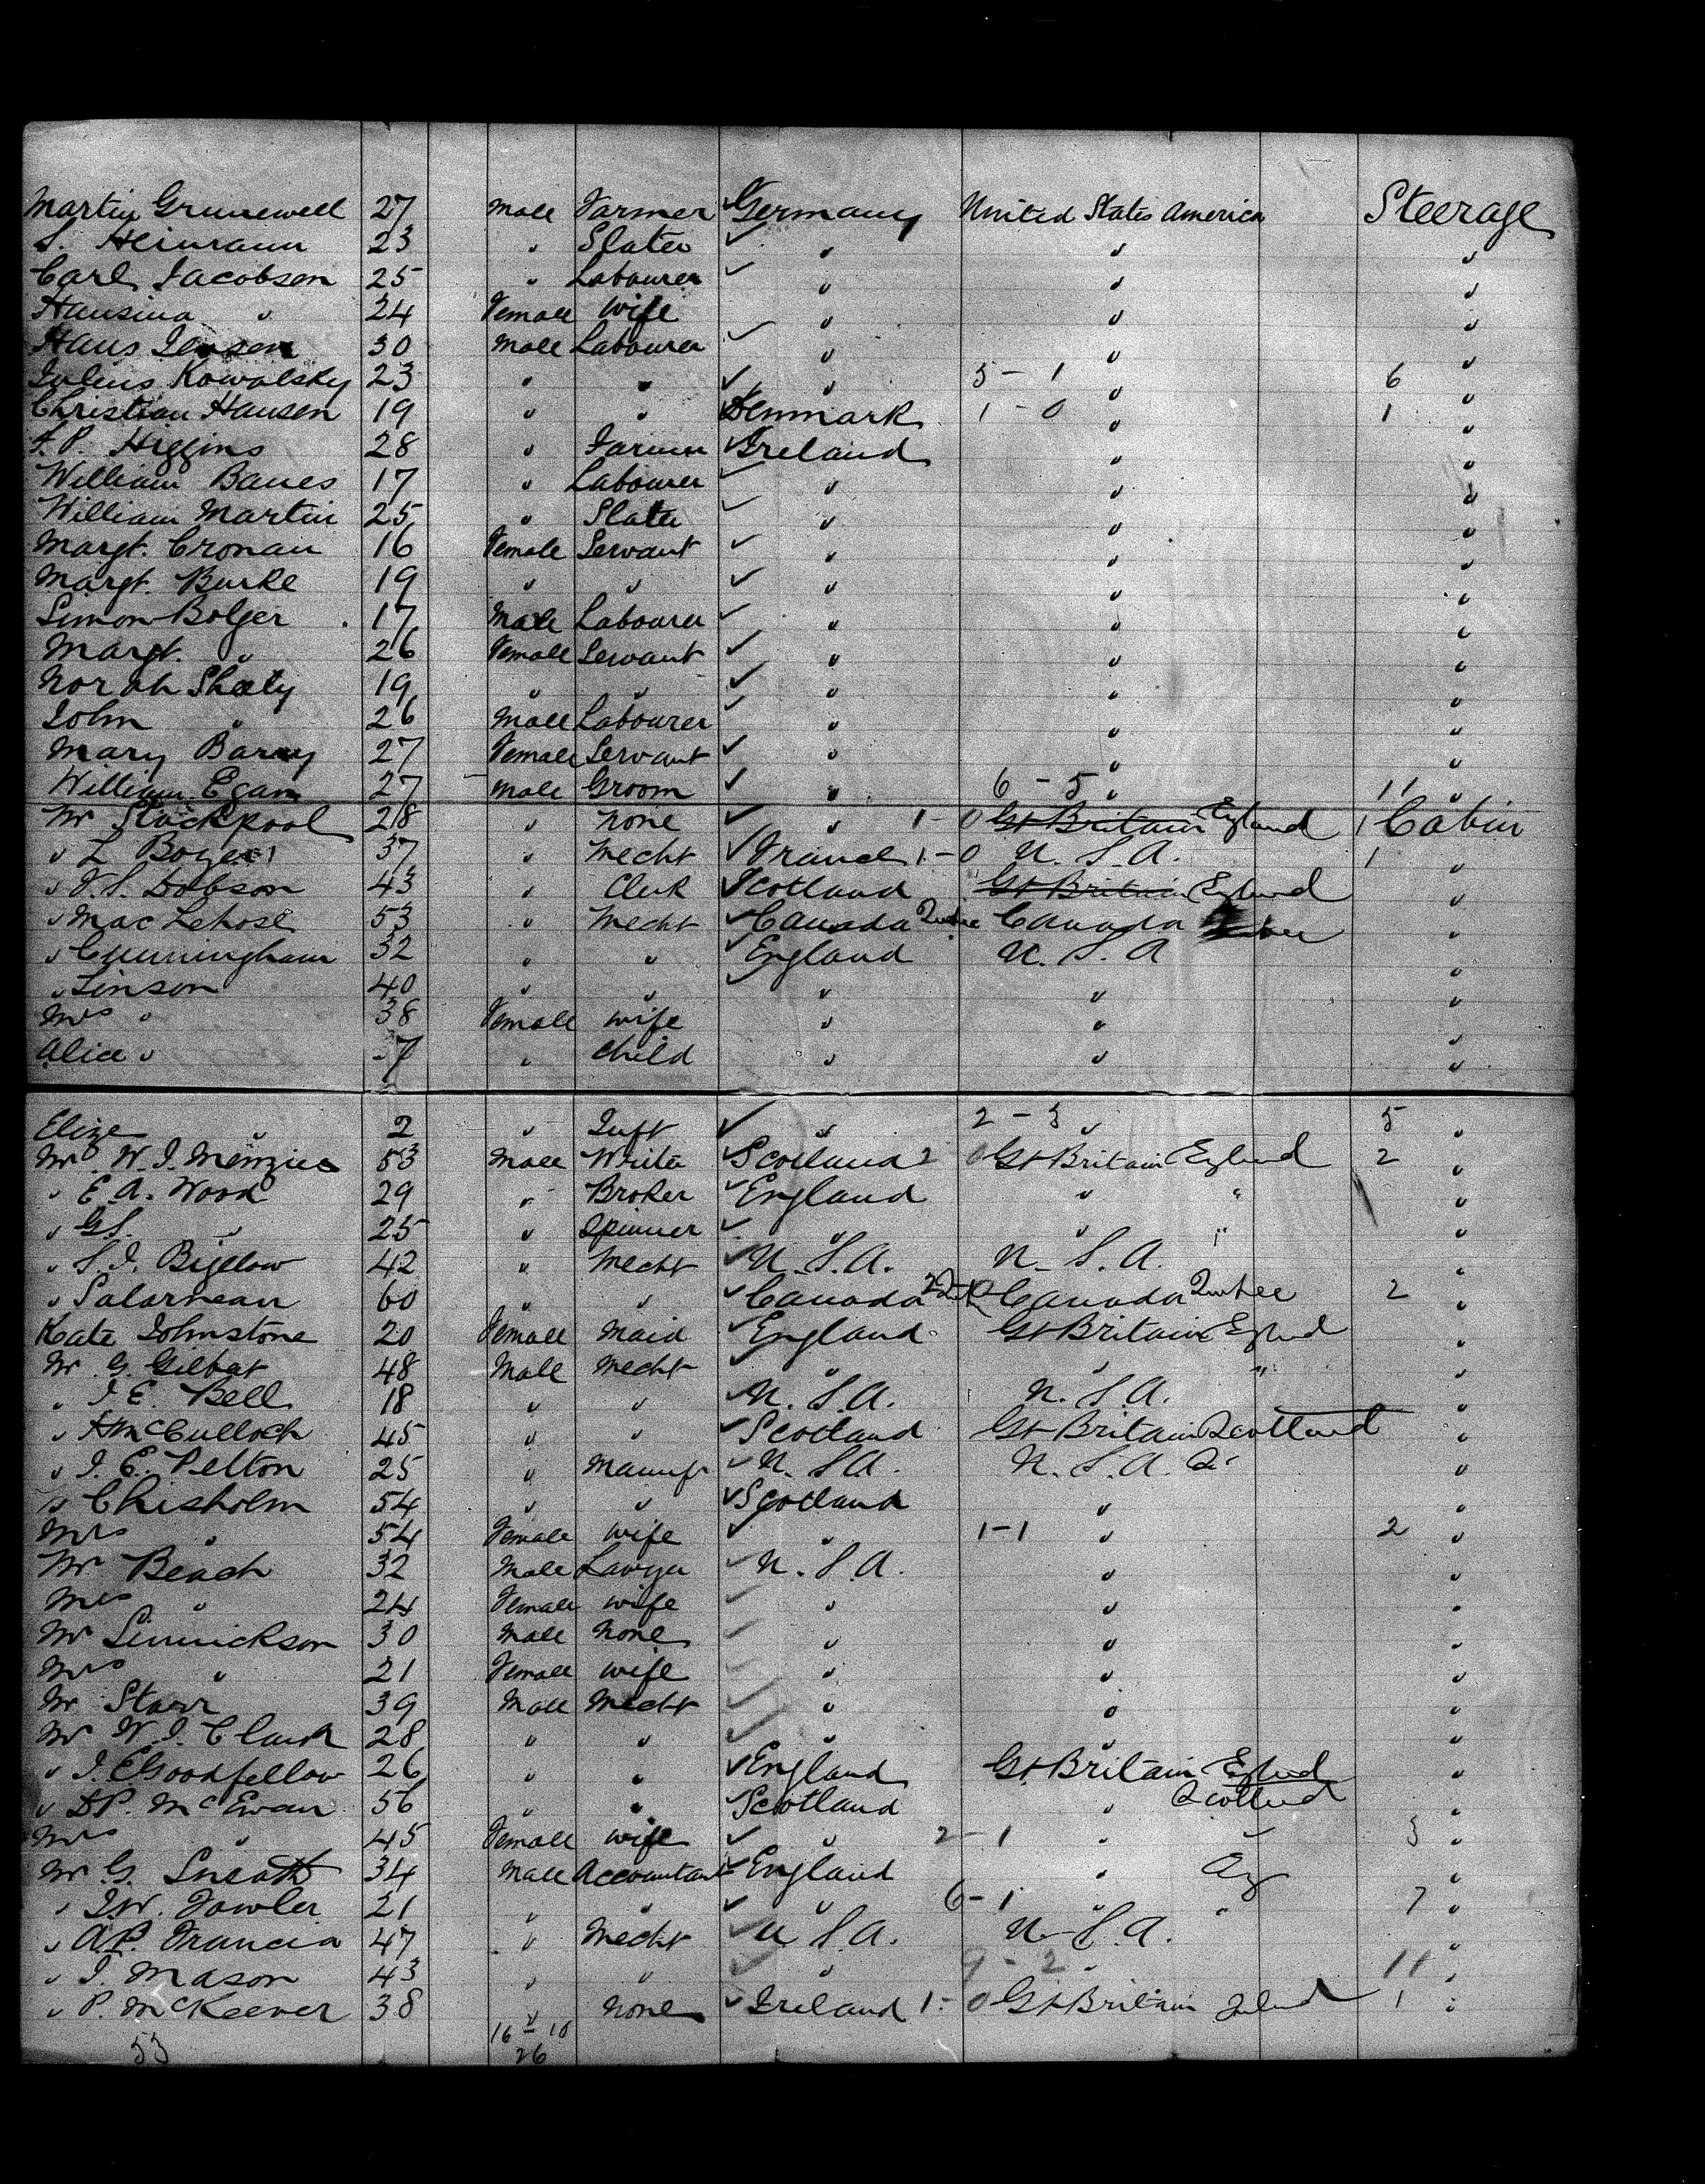 Martin Grunewell 27 Male Farmer Germany United States America Steerage
S. Heimann 23 " Slater " " "
Carl Jacobsen 25 " Labourer " " "
Hansina " 24 Female Wife " " "
Hans Jensen 30 Male Labourer " " "
Julius Kowalsky 23 " " " 5 - 1 " 6 "
Christian Hansen 19 " " Denmark 1 - 0 " 1 "
J. P. Higgins 28 " Farmer Ireland " "
William Banes 17 " Labourer " " "
William Martin 25 " Slater " " "
Margt. Cronan 16 Female Servant " " "
Margt. Burke 19 " " " " "
Simon Bolger 17 Male Labourer " " "
Margt. " 26 Female Servant " " "
Norah Sheety 19 " " " " "
John " 26 Male Labourer " " "
Mary Barry 27 Female Servant " " "
William Egan 27 Male Groom " 6 - 5 " 11 "
Mr Stackpool 28 " None " 1 - 0 Gt Britain England 1 Cabin
" L Boyer 37 " Mecht France 1 - 0 U. S. A. 1 "
" J. S. Dobson 43 " Clerk Scotland Gt Britain England "
" Mac Lehose 53 " Mecht Canada Quebec Canada "
" Cunningham 32 " " England U. S. A "
" Linson 40 " " " " "
Mrs " 38 Female Wife " " "
Alice " 7 " Child " " "
Elize " 2 " Inft " 2 - 3 " 5 "
Mr W. J. Menzies 53 Male Writer Scotland 2 0 Gt Britain England 2 "
" E. A. Wood 29 " Broker England " " "
" G. S. " 25 " Spinner " " " "
" S. J. Bigelow 42 " Mecht U. S. A. U. S. A. "
" Salarneau 60 " " Canada Canada Quebec 2 "
Kate Johnstone 20 Female Maid England Gt Britain England "
Mr G. Gilbat 48 Male Mecht " " " "
" J. E. Bell 18 " " U. S. A. U. S. A. "
" McCulloch 45 " " Scotland Gt Britain Scotland "
" J. E. Pelton 25 " Manuf U. S. A. U. S. A. "
" Chisholm 54 " " Scotland " "
Mrs " 54 Female Wife " 1 - 1 " 2 "
Mr Beach 32 Male Lawyer U. S. A. " "
Mrs " 24 Female Wife " " "
Mr Sinnickson 30 Male None " " "
Mrs " 21 Female Wife " " "
Mr Starr 39 Male Mecht " " "
Mr W. J. Clark 28 " " " " "
" J. E. Goodfellow 26 " " England Gt Britain England "
" D. P. McEwan 56 " " Scotland " Scotland "
Mrs " 45 Female Wife " 2 - 1 " " 3 "
Mr G. Sneath 34 Male Accountant England " Eng "
" J. W. Fowler 21 " " " 6 - 1 " " 7 "
" A. P. Francia 47 " Mecht U. S. A. U. S. A. "
" J. Mason 43 " " " 9 - 2 " 11 "
" P. McKeever 38 " None Ireland 1 - 0 Gt Britain Ireland 1 "
53 16 - 10
26